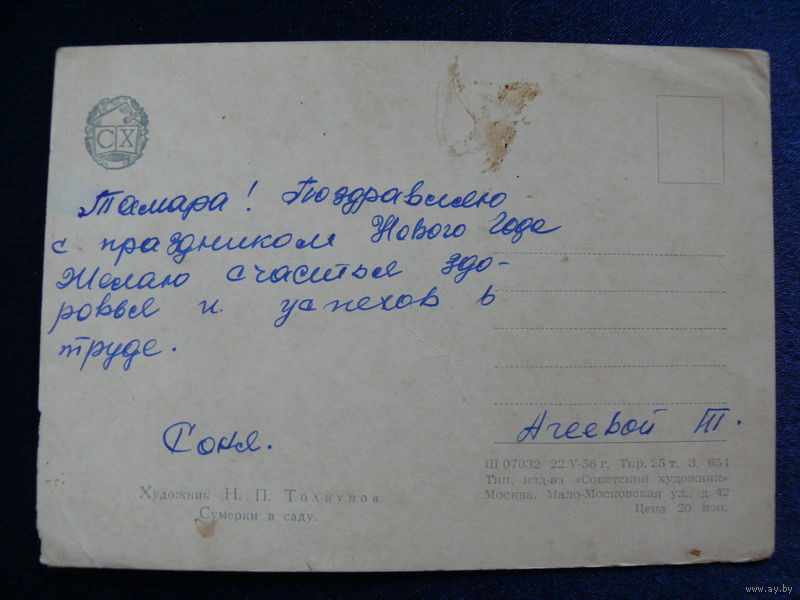 СХ
Тамара! Поздравляю
с праздником Нового Года
Желаю счастья здо-
ровья и успехов в
труде.
Соня.
Агеевой Т.
Ш 07032 22.V-56 г. Тир. 25 т. З. 654
Тип. изд-ва «Советский художник»
Москва, Мало-Московская ул., д 42
Цена 20 коп.
Художник Н. П. Толкунов
Сумерки в саду.
www.ay.by